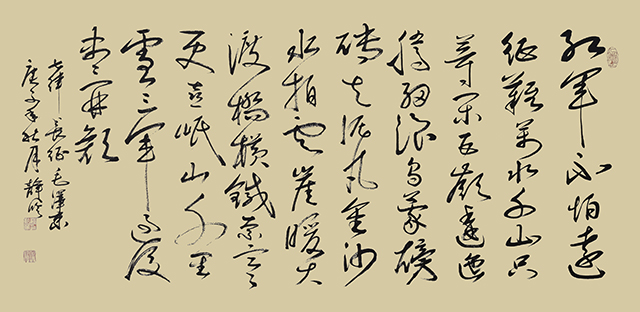 红军不怕远
征难萬水千山只
等闲五岭逶迤
腾细浪乌蒙磅
礴走泥丸金沙
水拍云崖暖大
渡橋横鐵索寒
更喜岷山千里
雪三军过後
尽开颜
七律 長征 毛澤東
庚子年秋月静